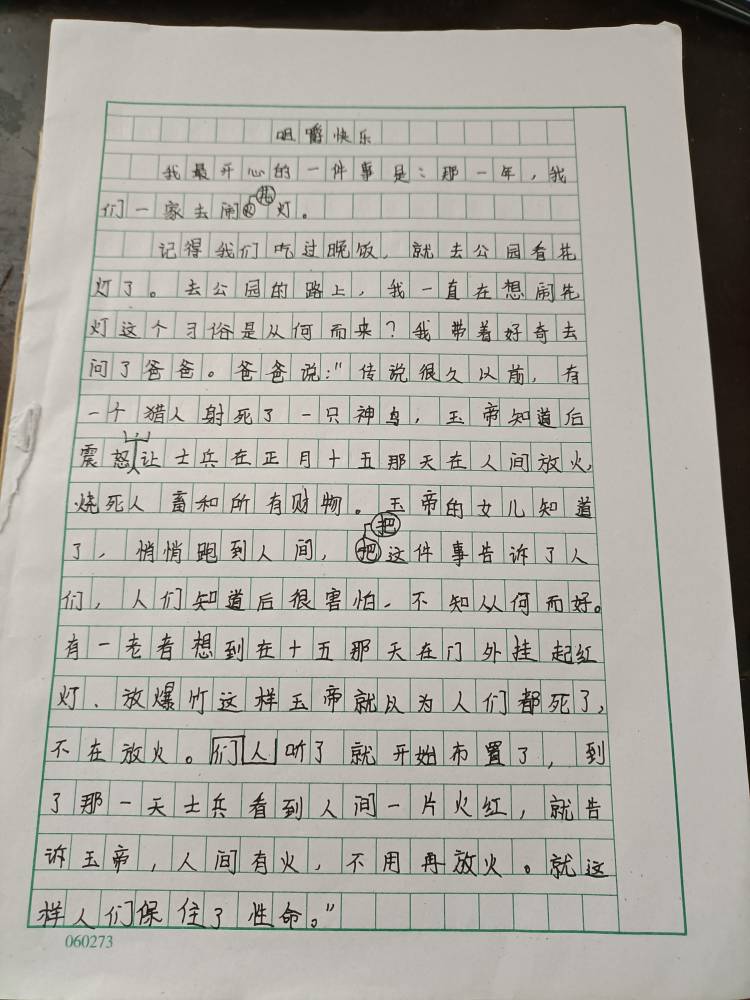 咀嚼快乐
我最开心的一件事是：那一年，我
们一家去闹花灯。
记得我们吃过晚饭，就去公园看花
灯了。去公园的路上，我一直在想闹花
灯这个习俗是从何而来？我带着好奇去
问了爸爸。爸爸说："传说很久以前，有
一个猎人射死了一只神鸟，玉帝知道后
震怒，让士兵在正月十五那天在人间放火，
烧死人畜和所有财物。玉帝的女儿知道
了，悄悄跑到人间，把这件事告诉了人
们，人们知道后很害怕，不知从何而好。
有一老者想到在十五那天在门外挂起红
灯、放爆竹这样玉帝就以为人们都死了，
不在放火。们人听了就开始布置了，到
了那一天士兵看到人间一片火红，就告
诉玉帝，人间有火，不用再放火。就这
样人们保住了性命。"
060273